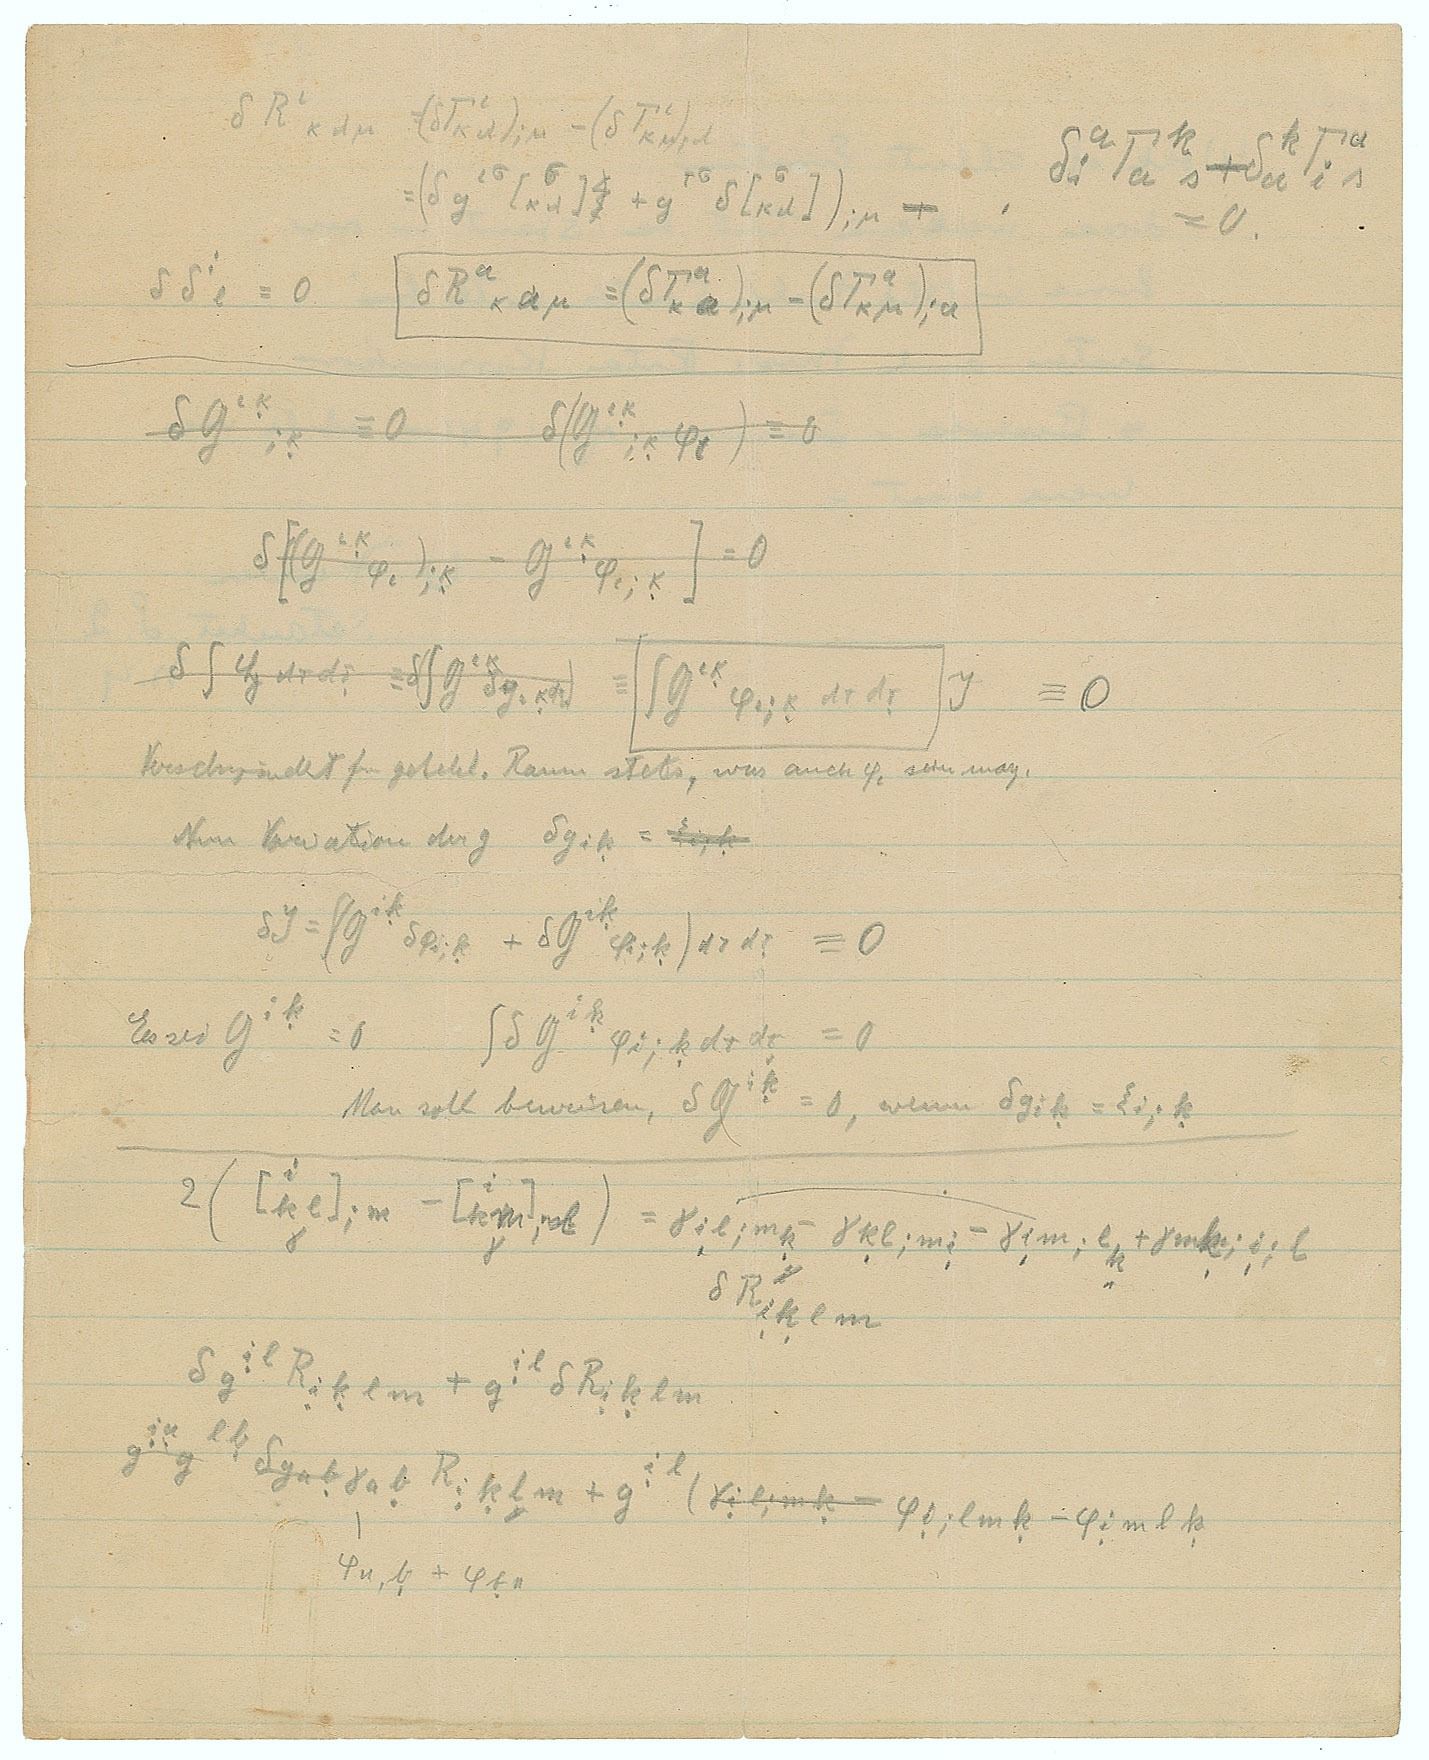 δR^ι_{κ α μ} = (δΓ^ι_{κα})_{;μ} − (δΓ^ι_{κμ})_{;α}
= (δg^{ισ} [^σ_{κα}] + g^{ισ} δ[^σ_{κα}])_{;μ} −
δ_i^a Γ_a^k_s + δ_a^k Γ_i^a_s
= 0.
δ δ^i_ι = 0 δR^a_{κ α μ} = (δΓ^a_{κ a})_{;μ} − (δΓ^a_{κμ})_{;a}
δG^{ικ}_{;κ} ≡ 0 δ(G^{ικ}_{;κ} φ_ι) ≡ 0
δ[(G^{ικ} φ_ι)_{;κ} − G^{ικ} φ_{ι;κ}] = 0
δ∫ dτ dτ ≡ δ(∫G^{ικ} δg_{ικ} dτ) ≡ ∫G^{ικ} φ_{ι;κ} dτ dτ J ≡ 0
Verschwindet für gegebel. Raum stets, was auch φ_ι sein mag.
Nun Variation der g δg_{ik} = ξ_{i;k}
δJ = ∫(G^{ik} δφ_{i;k} + δG^{ik} φ_{i;k}) dτ dτ ≡ 0
Es sei G^{ik} = 0 ∫δG^{ik} φ_{i;k} dτ dτ = 0
Man soll beweisen, δG^{ik} = 0, wenn δg_{ik} = ξ_{i;k}
2([^i_{kl}]_{γ;m} − [^i_{km}]_{γ;l}) = γ_{il;mk} − γ_{kl;mi} − γ_{im;lk} + γ_{mk;i;l}
δR_{iklm}
δg^{il} R_{iklm} + g^{il} δR_{iklm}
g^{ia} g^{lb} δg_{ab} γ_{ab} R_{iklm} + g^{il}(γ_{il;mk} − φ_{i;lmk} − φ_{imlk}
φ_{a,b} + φ_{b,a}